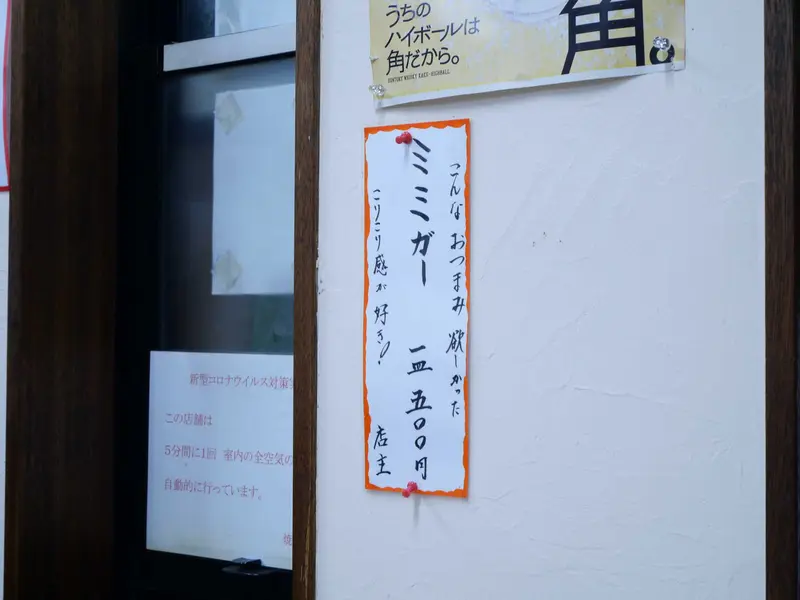 うちの
ハイボールは
角だから。
角。
こんな おつまみ 欲しかった
ミミガー 一皿 五〇〇円
こりこり感が好き!
店主
新型コロナウイルス対策
この店舗は
5分間に1回 室内の全空気の
自動的に行っています。